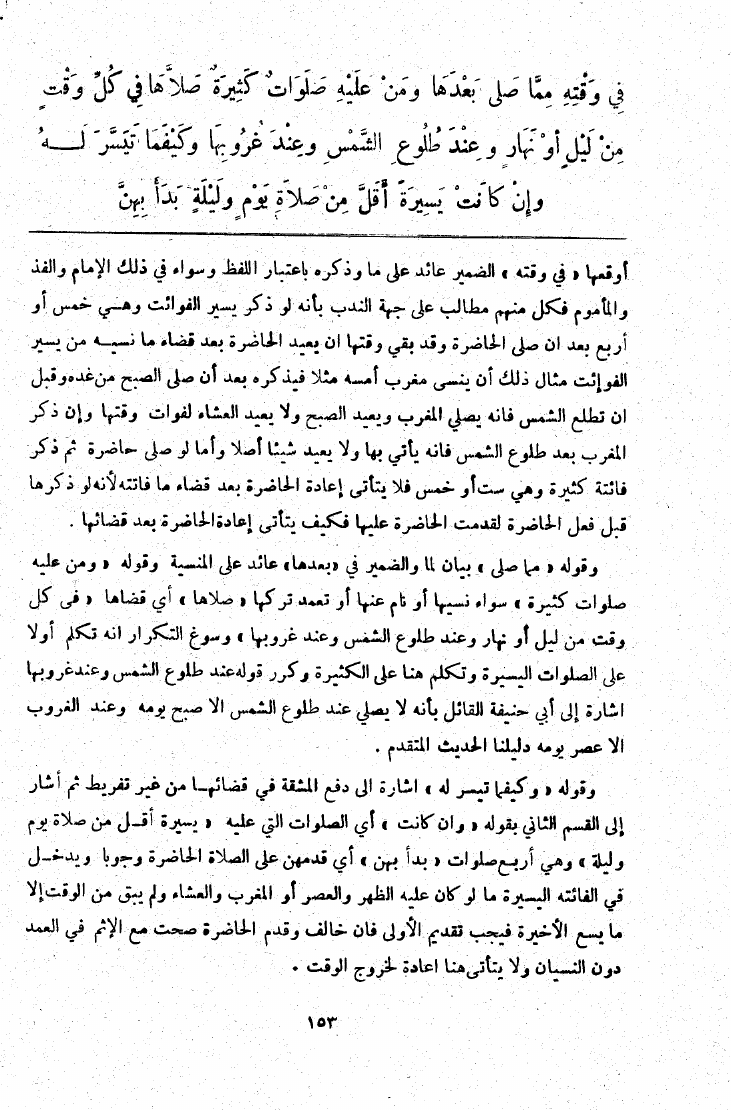 فِي وَقْتِهِ مِمَّا صَلى بَعْدَهَا ومَنْ عَلَيْهِ صَلَوَاتٌ كَثِيرَةٌ صَلاَّهَا فِي كُلِّ وَقْتٍ
مِنْ لَيْلٍ أوْ نَهَارٍ وعِنْدَ طُلُوعِ الشَّمْسِ وعِنْدَ غُرُوبِهَا وكَيْفَمَا تَيَسَّرَ لَــهُ
وإِنْ كَانَتْ يَسِيرَةً أَقَلَّ مِنْ صَلاَةِ يَوْمٍ ولَيْلَةٍ بَدَأَ بِهِنَّ
أوقعها « في وقته » الضمير عائد على ما وذكره باعتبار اللفظ وسواء في ذلك الإمام والفذ
والمأموم فكل منهم مطالب على جهة الندب بأنه لو ذكر يسير الفوائت وهــي خمس أو
أربع بعد ان صلى الحاضرة وقد بقي وقتها ان يعيد الحاضرة بعد قضاء ما نسيــه من يسير
الفوائت مثال ذلك أن ينسى مغرب أمسه مثلا فيذكره بعد أن صلى الصبح من غده وقبل
ان تطلع الشمس فانه يصلي المغرب ويعيد الصبح ولا يعيد العشاء لفوات وقتها وإن ذكر
المغرب بعد طلوع الشمس فانه يأتي بها ولا يعيد شيئا أصلا وأما لو صلى حاضرة ثم ذكر
فائتة كثيرة وهي ست أو خمس فلا يتأتى إعادة الحاضرة بعد قضاء ما فاتته لأنه لو ذكرها
قبل فعل الحاضرة لقدمت الحاضرة عليها فكيف يتأتى إعادة الحاضرة بعد قضائها .
وقوله « مما صلى » بيان لما والضمير في «بعدها» عائد على المنسية وقوله « ومن عليه
صلوات كثيرة » سواء نسيها أو نام عنها أو تعمد تركها « صلاها » أي قضاها « في كل
وقت من ليل أو نهار وعند طلوع الشمس وعند غروبها » وسوغ التكرار انه تكلم أولا
على الصلوات اليسيرة وتكلم هنا على الكثيرة وكرر قوله عند طلوع الشمس وعند غروبها
اشارة إلى أبي حنيفة القائل بأنه لا يصلي عند طلوع الشمس الا صبح يومه وعند الغروب
الا عصر يومه دليلنا الحديث المتقدم .
وقوله « وكيفما تيسر له » اشارة الى دفع المشقة في قضائهــا من غير تفريط ثم أشار
إلى القسم الثاني بقوله « وان كانت » أي الصلوات التي عليه « يسيرة أقــل من صلاة يوم
وليلة » وهي أربع صلوات « بدأ بهن » أي قدمهن على الصلاة الحاضرة وجوبا ويدخــل
في الفائته اليسيرة ما لو كان عليه الظهر والعصر أو المغرب والعشاء ولم يبق من الوقت إلا
ما يسع الأخيرة فيجب تقديم الأولى فان خالف وقدم الحاضرة صحت مع الإثم في العمد
دون النسيان ولا يتأتى هنا اعادة لخروج الوقت .
١٥٣